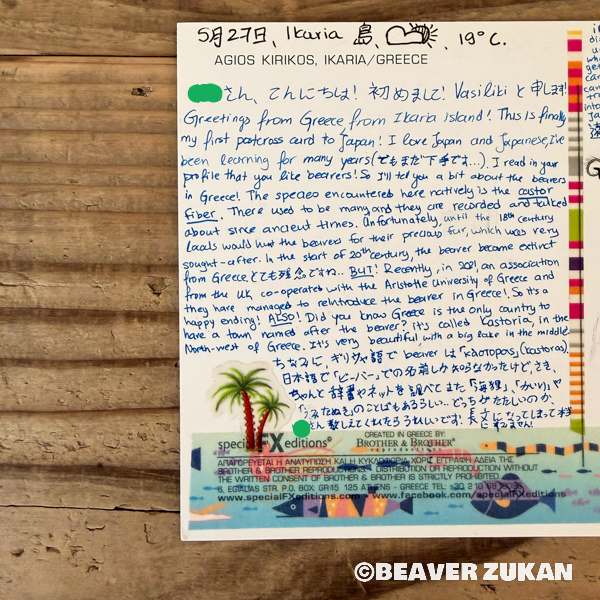 5月27日、Ikaria 島、19°C.
AGIOS KIRIKOS, IKARIA/GREECE
さん、こんにちは! 初めまして! Vasiliki と申します!
Greetings from Greece, from Ikaria island! This is finally
my first postcross card to Japan! I love Japan and Japanese, I've
been learning for many years (でもまだ下手です...). I read in your
profile that you like beavers! So I'll tell you a bit about the beavers
in Greece! The species encountered here natively is the castor
fiber. There used to be many and they are recorded and talked
about since ancient times. Unfortunately, until the 18th century
locals would hunt the beavers for their precious fur, which was very
sought-after. In the start of 20th century, the beaver became extinct
from Greece とても残念ですね.. BUT! Recently, in 2021, an association
from the UK co-operated with the Aristotle University of Greece and
they have managed to reintroduce the beaver in Greece! So it's a
happy ending! ALSO! Did you know Greece is the only country to
have a town named after the beaver? it's called Kastoria, in the
North-west of Greece. It's very beautiful with a big lake in the middle
ちなみに、ギリシャ語で beaver は「κάστορας」(kastoras).
日本語で「ビーバー」での名前しか知らなかったけど、さき、
ちゃんと辞書やネットを調べてまた「海狸」、「かいり」や
「うみたぬき」のことばもあるらしい.. どっちがただしいのか、
さん 教えてくれたらうれしいです! 長文になってしまって本当
にすみません!
specialFXeditions®
CREATED IN GREECE BY:
BROTHER & BROTHER®
reproductions
ΑΠΑΓΟΡΕΥΕΤΑΙ Η ΑΝΑΤΥΠΩΣΗ ΚΑΙ Η ΚΥΚΛΟΦΟΡΙΑ ΧΩΡΙΣ ΕΓΓΡΑΦΗ ΑΔΕΙΑ ΤΗΣ
BROTHER & BROTHER REPRODUCTIONS. DISTRIBUTION OR REPRODUCTION WITHOUT
THE WRITTEN CONSENT OF BROTHER & BROTHER IS STRICTLY PROHIBITED
6, EGIALIAS STR. P.O. BOX: GR15 125 ATHENS - GREECE TEL: +30 210
www.specialFXeditions.com www.facebook.com/specialFXeditions
©BEAVER ZUKAN